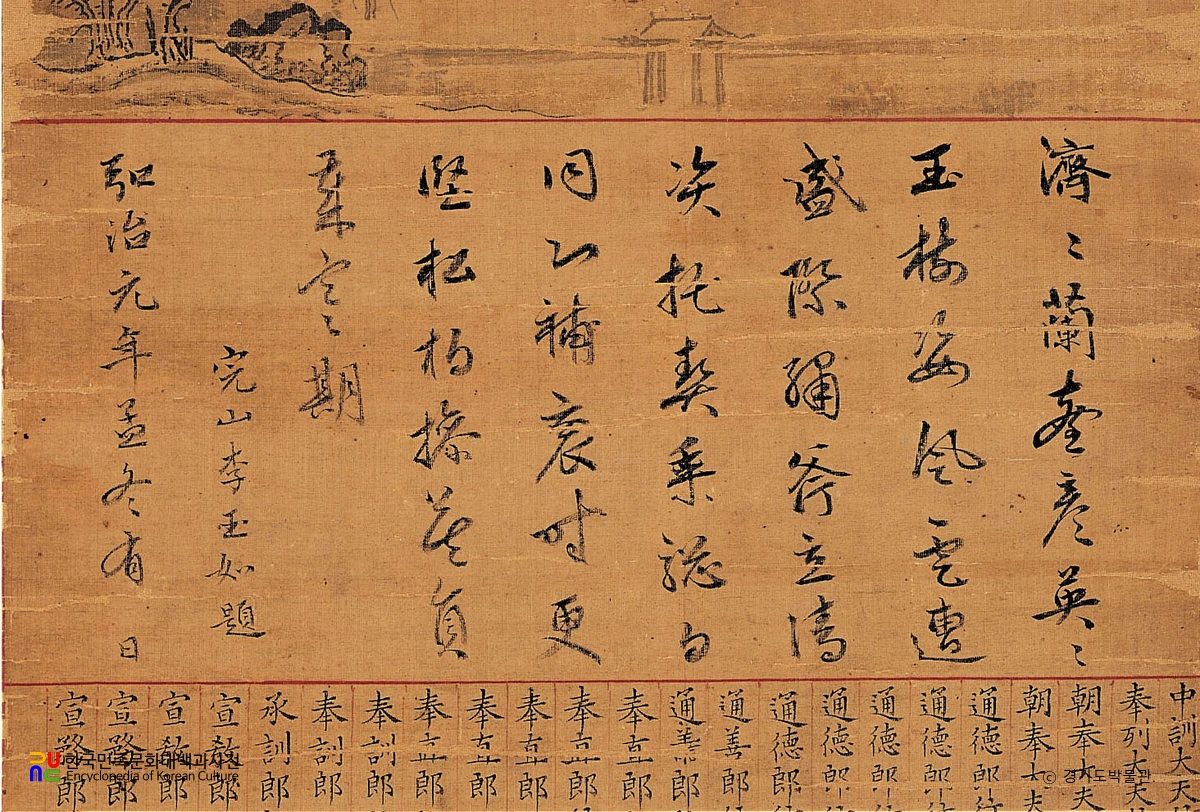 濟〻蘭臺彦英〻
玉樹姿風雲遭
盛際繡斧立清
托契乗驄日
同心補袞時更
堅松柏操莫負
歲寒期
完山李玉如題
弘治元年孟冬有 日
中訓大夫
奉列大夫
朝奉大夫
朝奉大夫
通德郎
通德郎
通德郎
通德郎
通德郎
通善郎
通善郎
奉直郎
奉直郎
奉直郎
奉直郎
奉直郎
奉訓郎
奉訓郎
承訓郎
宣敎郎
宣敎郎
宣務郎
宣務郎
한국민족문화대백과사전
Encyclopedia of Korean Culture
© 경기도박물관